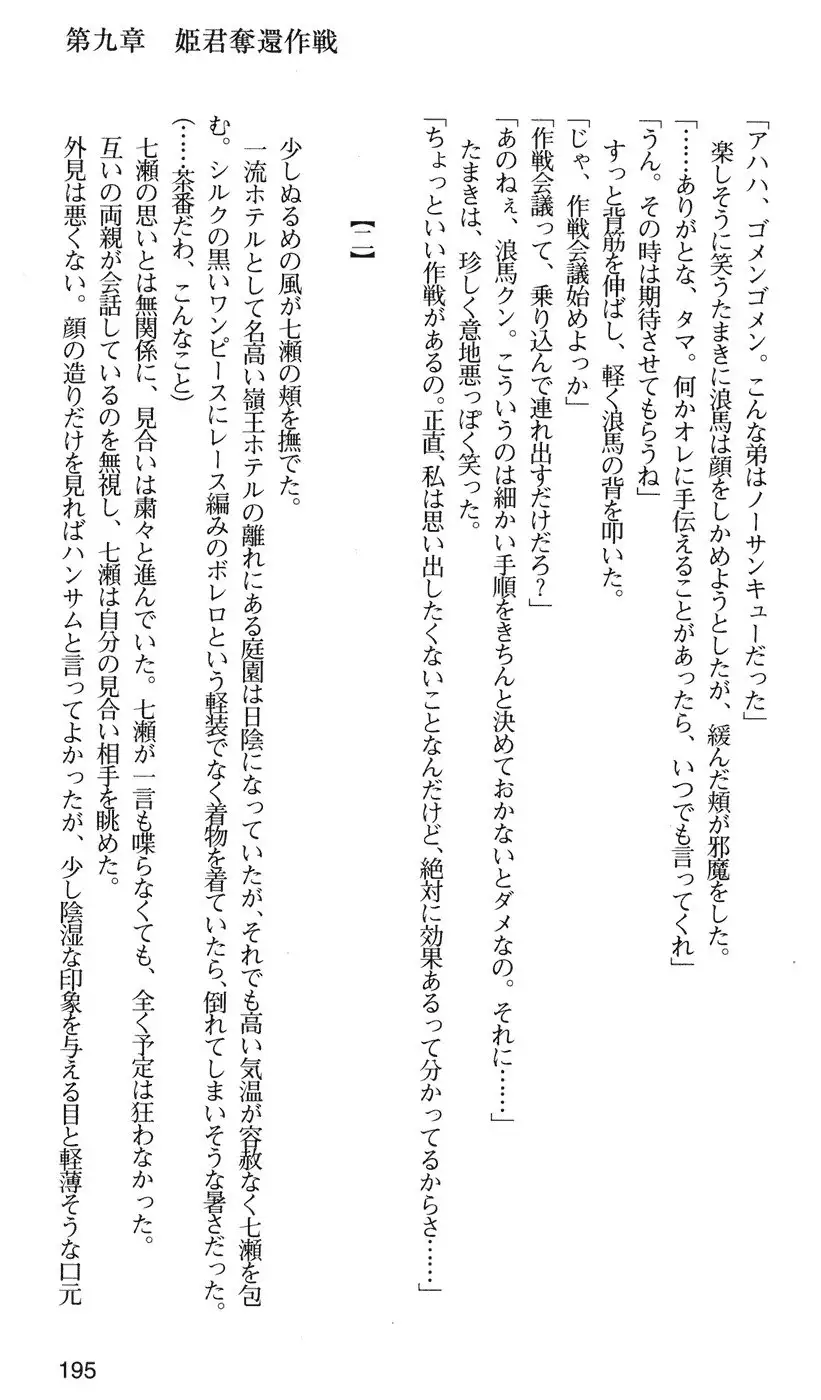 第九章　姫君奪還作戦
「アハハ、ゴメンゴメン。こんな弟はノーサンキューだった」
楽しそうに笑うたまきに浪馬は顔をしかめようとしたが、緩んだ頬が邪魔をした。
「……ありがとな、タマ。何かオレに手伝えることがあったら、いつでも言ってくれ」
「うん。その時は期待させてもらうね」
すっと背筋を伸ばし、軽く浪馬の背を叩いた。
「じゃ、作戦会議始めよっか」
「作戦会議って、乗り込んで連れ出すだけだろ？」
「あのねぇ、浪馬クン。こういうのは細かい手順をきちんと決めておかないとダメなの。それに……」
たまきは、珍しく意地悪っぽく笑った。
「ちょっといい作戦があるの。正直、私は思い出したくないことなんだけど、絶対に効果あるって分かってるからさ……」
【二】
少しぬるめの風が七瀬の頬を撫でた。
一流ホテルとして名高い嶺王ホテルの離れにある庭園は日陰になっていたが、それでも高い気温が容赦なく七瀬を包
む。シルクの黒いワンピースにレース編みのボレロという軽装でなく着物を着ていたら、倒れてしまいそうな暑さだった。
（……茶番だわ、こんなこと）
七瀬の思いとは無関係に、見合いは粛々と進んでいた。七瀬が一言も喋らなくても、全く予定は狂わなかった。
互いの両親が会話しているのを無視し、七瀬は自分の見合い相手を眺めた。
外見は悪くない。顔の造りだけを見ればハンサムと言ってよかったが、少し陰湿な印象を与える目と軽薄そうな口元
195